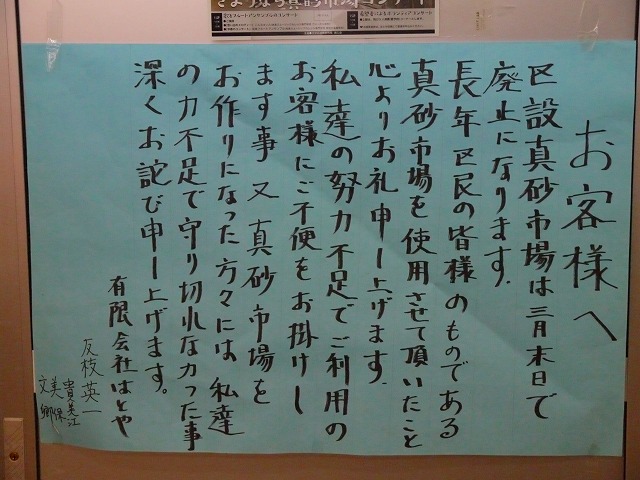 さようなら真砂市場コンサート
お客様へ
区設真砂市場は三月末日で
廃止になります.
長年区民の皆様のものである
真砂市場を使用させて頂いたこと
心よりお礼申し上げます.
私達の努力不足でご利用の
お客様にご不便をお掛けし
ます事 又 真砂市場を
お作りになった方々には 私達
の力不足で守り切れなかった事
深くお詫び申し上げます。
有限会社はとや
友枝英一
貴美江
美保
文郷